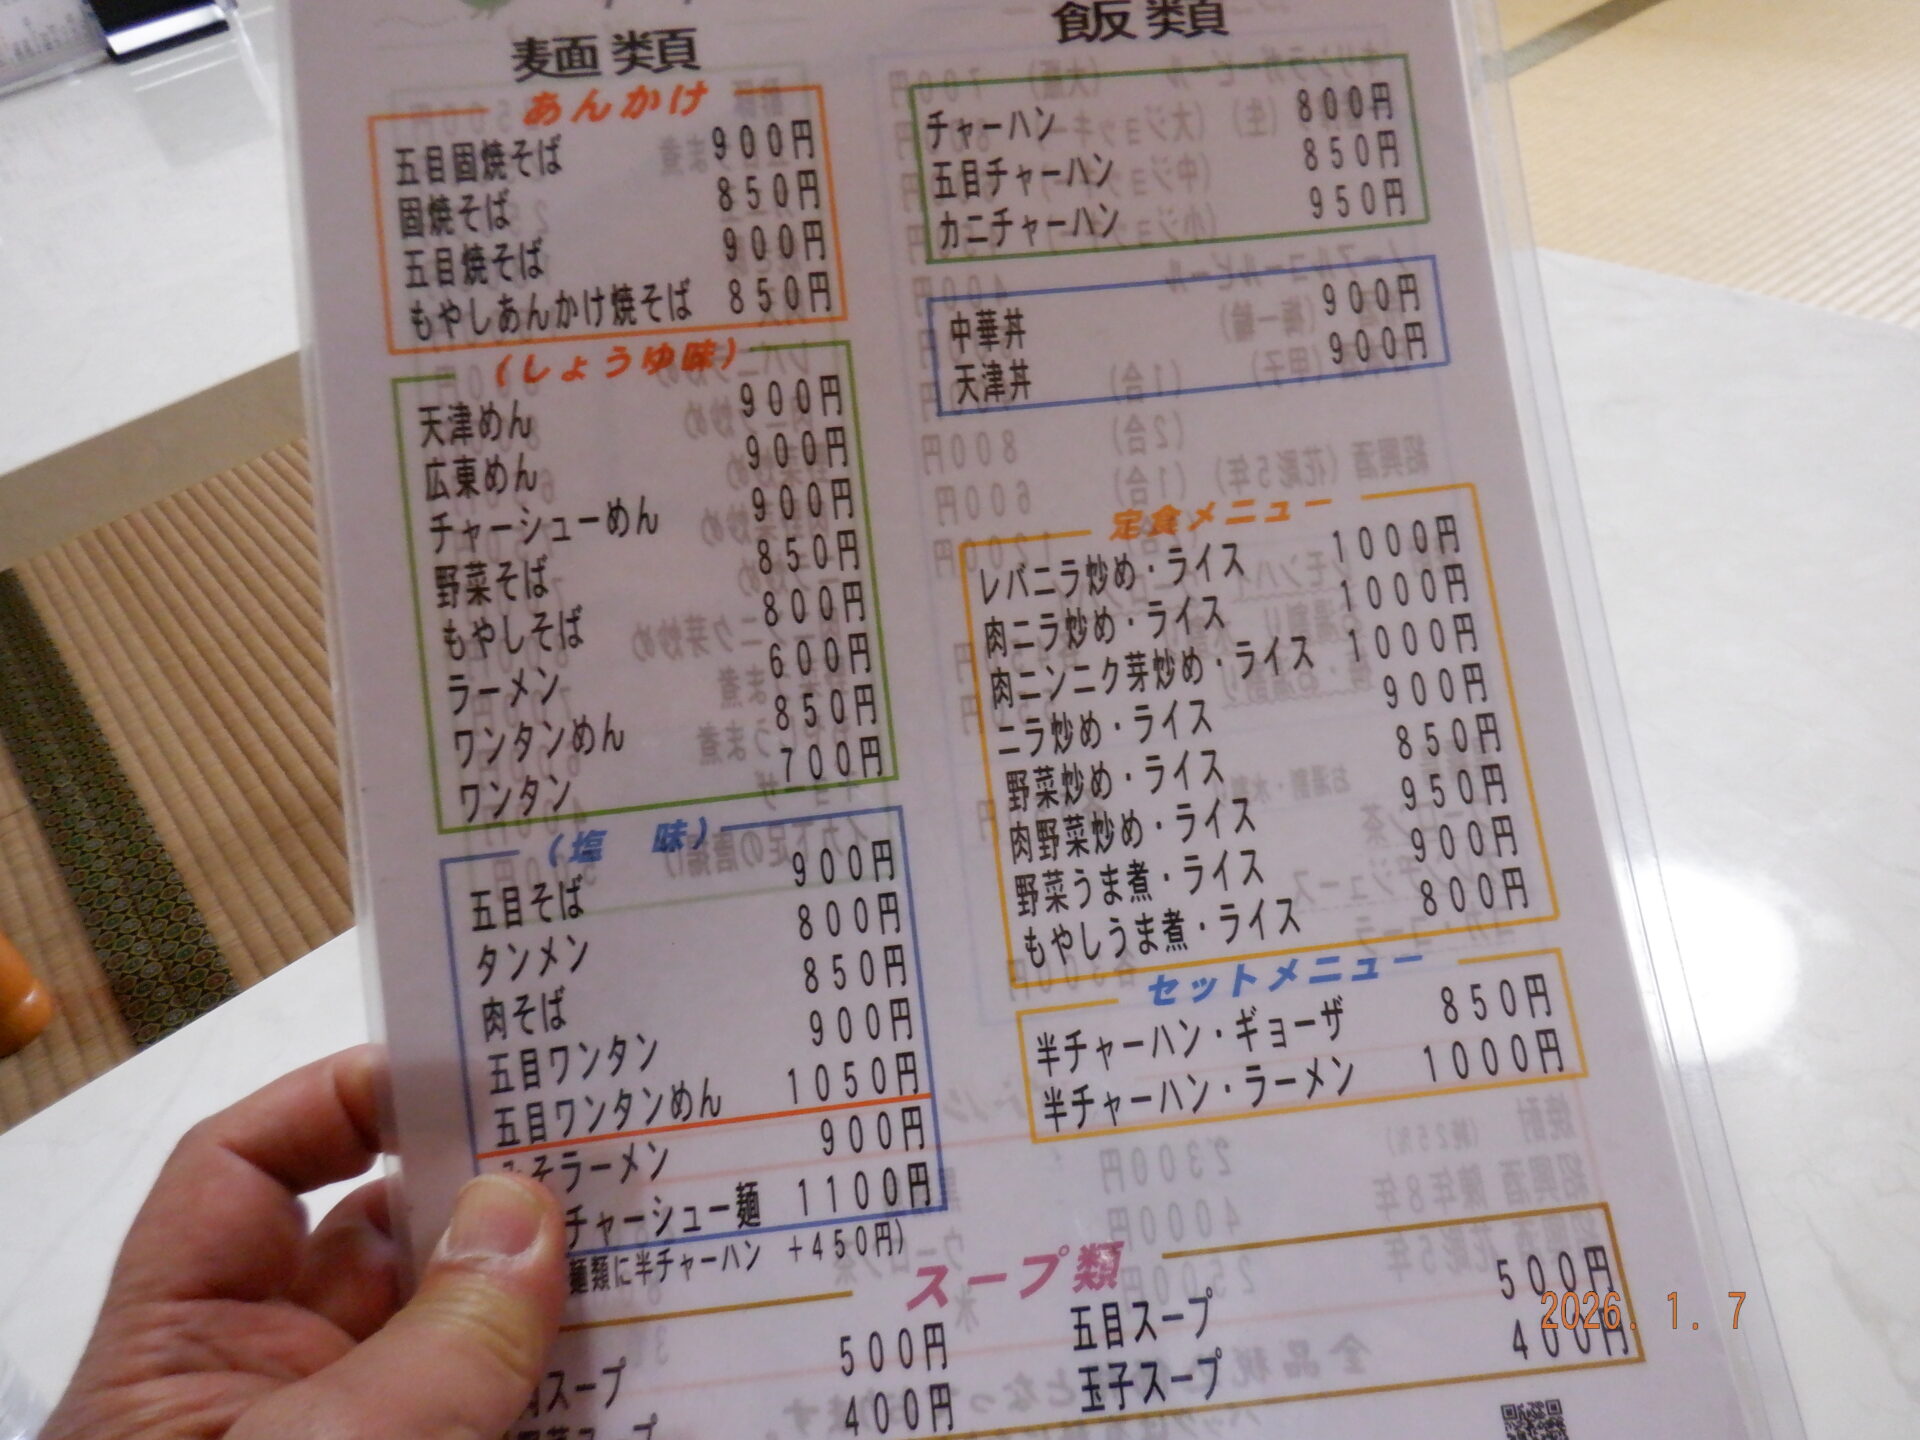 麺類
あんかけ
五目固焼そば 900円
固焼そば 850円
五目焼そば 900円
もやしあんかけ焼そば 850円
(しょうゆ味)
天津めん 900円
広東めん 900円
チャーシューめん 900円
野菜そば 850円
もやしそば 800円
ラーメン 600円
ワンタンめん 850円
ワンタン 700円
(塩 味)
五目そば 900円
タンメン 800円
肉そば 850円
五目ワンタン 900円
五目ワンタンめん 1050円
みそラーメン 900円
チャーシュー麺 1100円
麺類に半チャーハン +450円)
飯類
チャーハン 800円
五目チャーハン 850円
カニチャーハン 950円
中華丼 900円
天津丼 900円
定食メニュー
レバニラ炒め・ライス 1000円
肉ニラ炒め・ライス 1000円
肉ニンニク芽炒め・ライス 1000円
ニラ炒め・ライス 900円
野菜炒め・ライス 850円
肉野菜炒め・ライス 950円
野菜うま煮・ライス 900円
もやしうま煮・ライス 800円
セットメニュー
半チャーハン・ギョーザ 850円
半チャーハン・ラーメン 1000円
スープ類
肉スープ 500円
スープ 400円
五目スープ 500円
玉子スープ 400円
2026. 1. 7